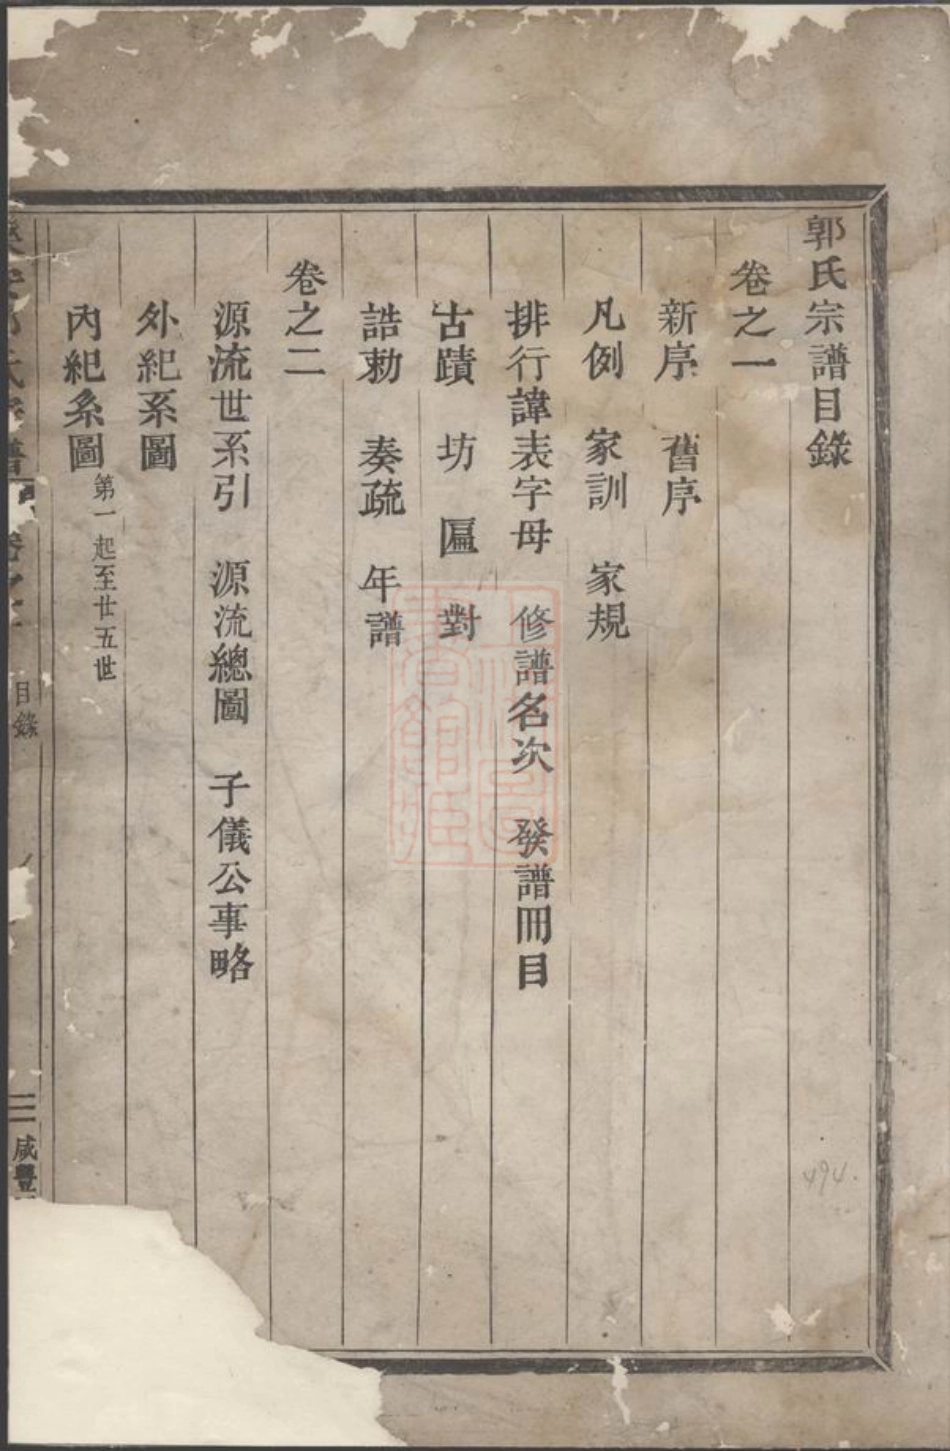 郭氏宗譜目錄
卷之一
新序 舊序
凡例 家訓 家規
排行諱表字母 修譜名次 發譜冊目
古蹟 坊 匾 對
誥勅 奏疏 年譜
卷之二
源流世系引 源流總圖 子儀公事略
外紀系圖
內紀系圖 第一起至廿五世
氏 譜 目錄 三 咸豐
494.